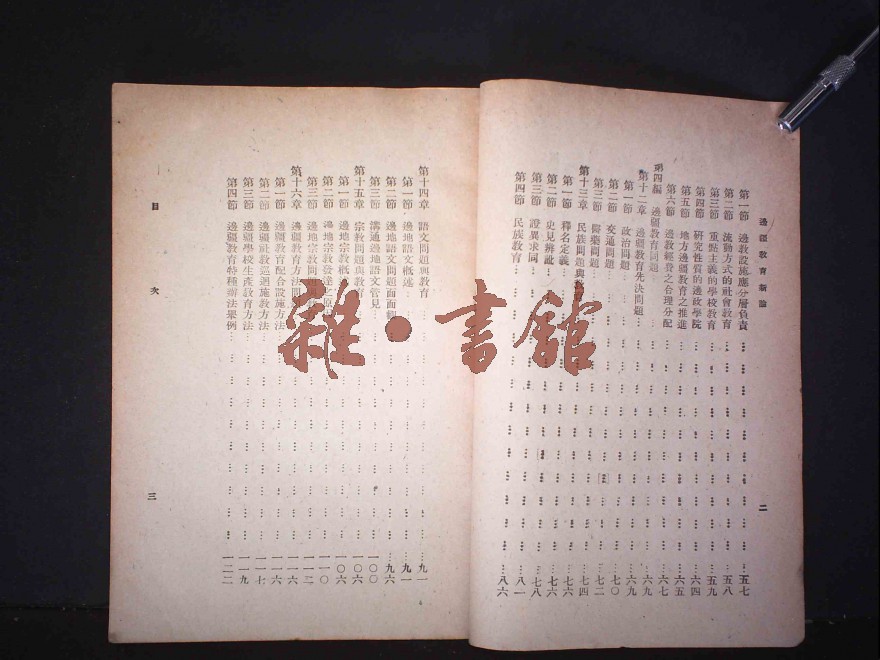 邊疆教育新論
二
第一節 邊教設施應分層負責 五七
第二節 流動方式的社會教育 五八
第三節 重點主義的學校教育 五九
第四節 研究性質的邊政學院 六四
第五節 地方邊疆教育之推進 六五
第六節 邊教經費之合理分配 六七
第四編 邊疆教育問題
第十二章 邊疆教育先決問題 六九
第一節 政治問題 六九
第二節 交通問題 七〇
第三節 醫藥問題 七二
第十三章 民族問題與教育 七四
第一節 釋名定義 七六
第二節 史見辨訛 七六
第三節 證異求同 七八
第四節 民族教育 八一
八六
第十四章 語文問題與教育 九一
第一節 邊地語文概述 九一
第二節 邊地語文問題面面觀 九六
第三節 溝通邊地語文管見 一〇〇
第十五章 宗教問題與教育 一〇六
第一節 邊地宗教概述 一〇六
第二節 邊地宗教發達之原因 一一〇
第三節 邊地宗教問題 一一二
第十六章 邊疆教育方法問題 一一六
第一節 邊疆教育配合設施方法 一一六
第二節 邊疆社教巡迴施教方法 一一七
第三節 邊疆學校生產教育方法 一一九
第四節 邊疆教育特種辦法舉例 一二二
目次
三
雜·書館